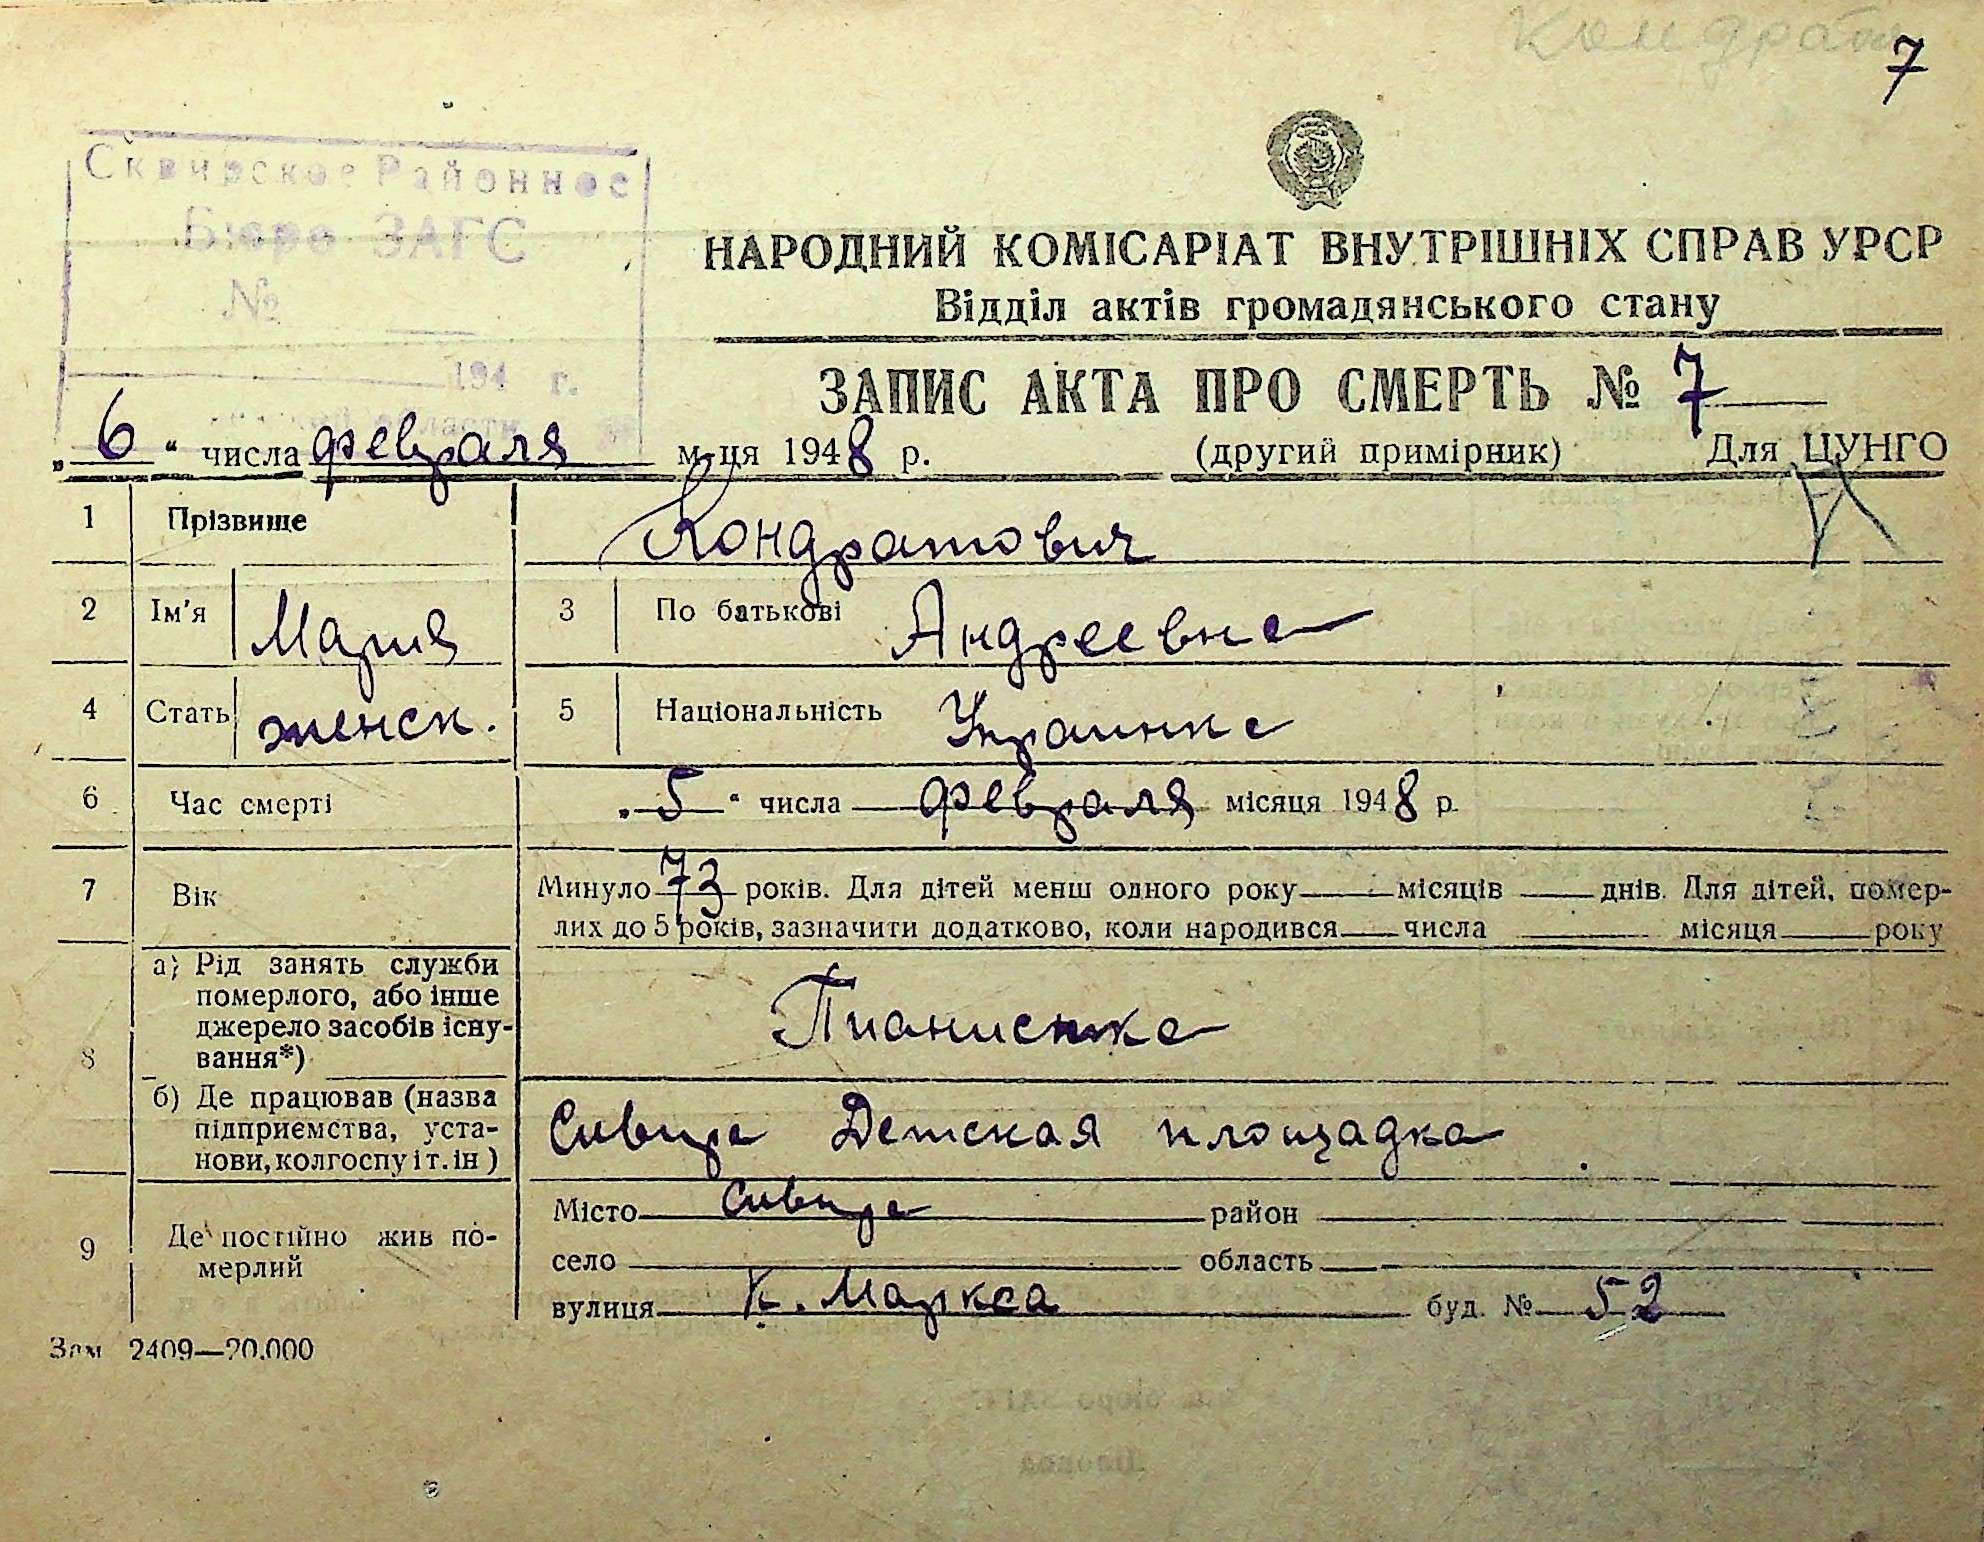 7
Сквирское Районное
Бюро ЗАГС
№
194 г.
области
НАРОДНИЙ КОМІСАРІАТ ВНУТРІШНІХ СПРАВ УРСР
Відділ актів громадянського стану
ЗАПИС АКТА ПРО СМЕРТЬ № 7
„ 6 “ числа февраля м-ця 1948 р. (другий примірник) Для ЦУНГО
1 Прізвище Кондратович
2 Ім'я Мария 3 По батькові Андреевна
4 Стать женск. 5 Національність Украинка
6 Час смерті „ 5 “ числа февраля місяця 1948 р.
7 Вік Минуло 73 років. Для дітей менш одного року місяців днів. Для дітей, помер-
лих до 5 років, зазначити додатково, коли народився числа місяця року
8 а) Рід занять служби
померлого, або інше
джерело засобів існу-
вання*)
Пианистка
б) Де працював (назва
підприємства, уста-
нови, колгоспу і т. ін )
Сквира Детская площадка
9 Де постійно жив по-
мерлий
Місто Сквира район
село область
вулиця К. Маркса буд. № 52
Зам 2409—20.000